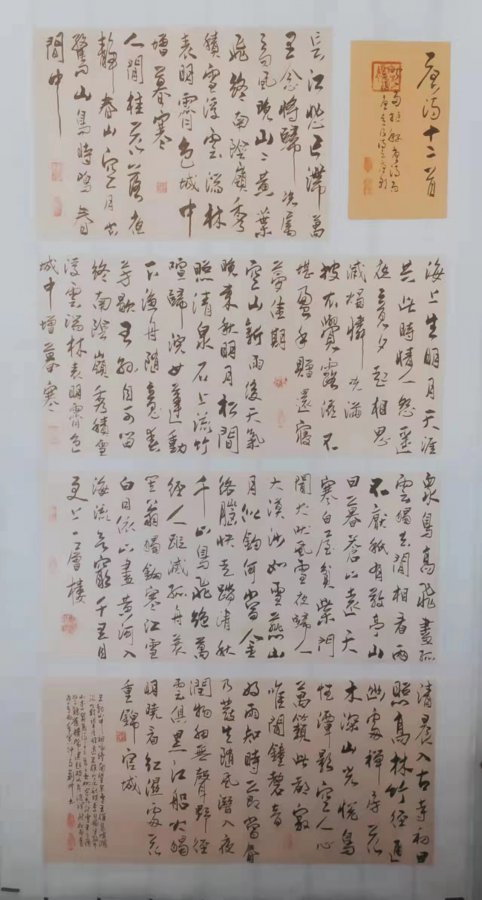 唐詩十二首
長江悲已滯萬
里念將歸况屬
高風晚山山黄葉
飛終南陰嶺秀
積雪浮雲端林
表明霽色城中
增暮寒
人閒桂花落夜
靜春山空月出
驚山鳥時鳴春
澗中
海上生明月天涯
共此時情人怨遥
夜竟夕起相思
滅燭憐光滿
披衣覺露滋不
堪盈手贈還寢
夢佳期
空山新雨後天氣
晚來秋明月松間
照清泉石上流竹
喧歸浣女蓮動
下漁舟隨意春
芳歇王孫自可留
終南陰嶺秀積雪
浮雲端林表明霽色
城中增暮寒
衆鳥高飛盡孤
雲獨去閒相看兩
不厭祇有敬亭山
日暮蒼山遠天
寒白屋貧柴門
聞犬吠風雪夜歸人
大漠沙如雪燕山
月似鈎何當金
絡腦快走踏清秋
千山鳥飛絶萬
徑人蹤滅孤舟蓑
笠翁獨釣寒江雪
白日依山盡黄河入
海流欲窮千里目
更上一層樓
清晨入古寺初日
照高林竹徑通
幽處禪房花
木深山光悦鳥
性潭影空人心
萬籟此都寂
惟聞鐘磬音
好雨知時節當春
乃發生隨風潛入夜
潤物細無聲野徑
雲俱黑江船火獨
明曉看紅濕處花
重錦官城